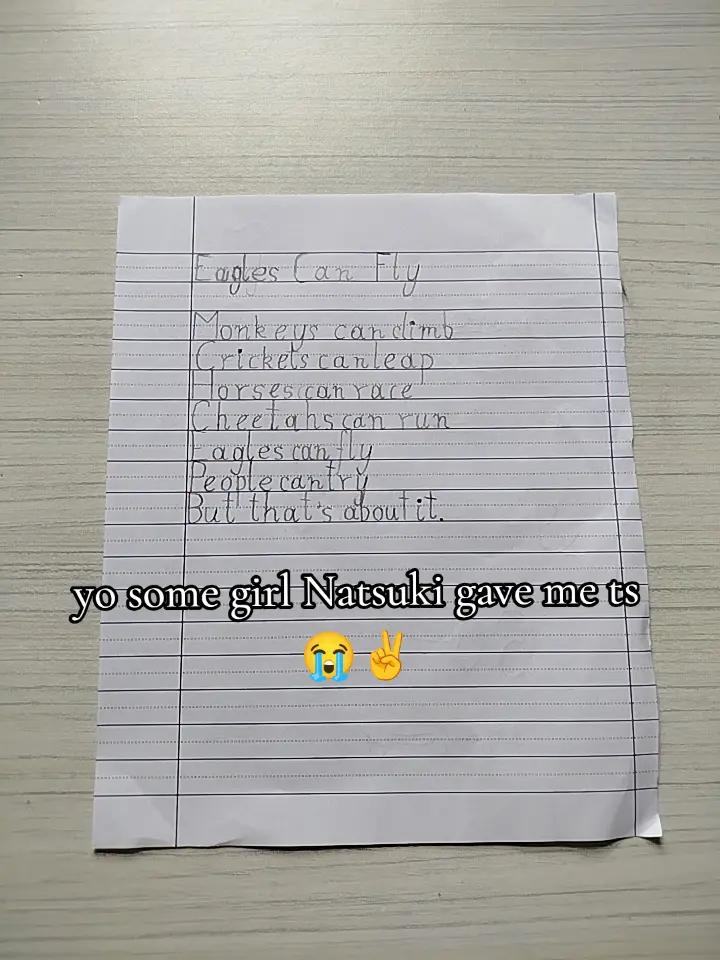 Eagles Can Fly
Monkeys can climb
Crickets can leap
Horses can race
Cheetahs can run
Eagles can fly
People can try
But that's about it.
yo some girl Natsuki gave me ts
😭✌️